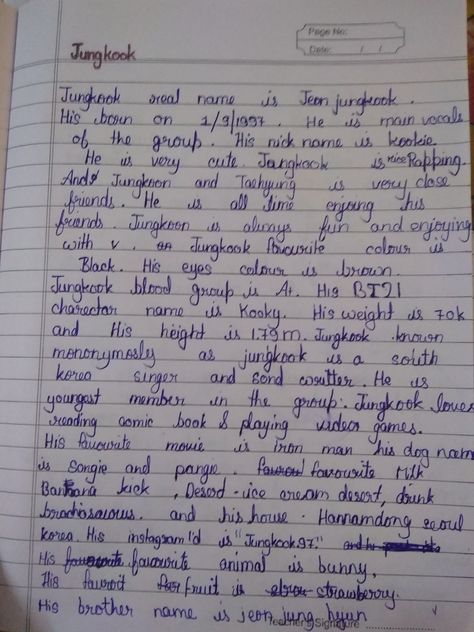 Page No:
Date: / /
Jungkook
Jungkook real name is Jeon jungkook.
His born on 1/9/1997. He is main vocals
of the group. His nick name is kookie.
He is very cute. Jungkook is nice Rapping.
And Jungkoon and Taehyung is very close
friends. He is all time enjoing his
friends. Jungkoon is always fun and enjoying
with v. Jungkook favourite colour is
Black. His eyes colour is brown.
Jungkook blood group is A+. His BT21
charector name is Kooky. His weight is 70k
and His height is 1.79m. Jungkook known
mononymosly as jungkook is a south
korea singer and sond writter. He is
youngest member in the group. Jungkook loves
reading comic book & playing video games.
His favourite movie is iron man his dog naem
is Songie and pangie. favourite Milk
Banana kick, Deserd - ice cream desert, drink
brachiosaurous. and his house - Hannamdong seoul
korea. His instagram i'd is "Jungkook97."
His favourite animal is bunny,
His favroit fruit is strawberry.
His brother name is jeon jung hyun
Teacher's Signature